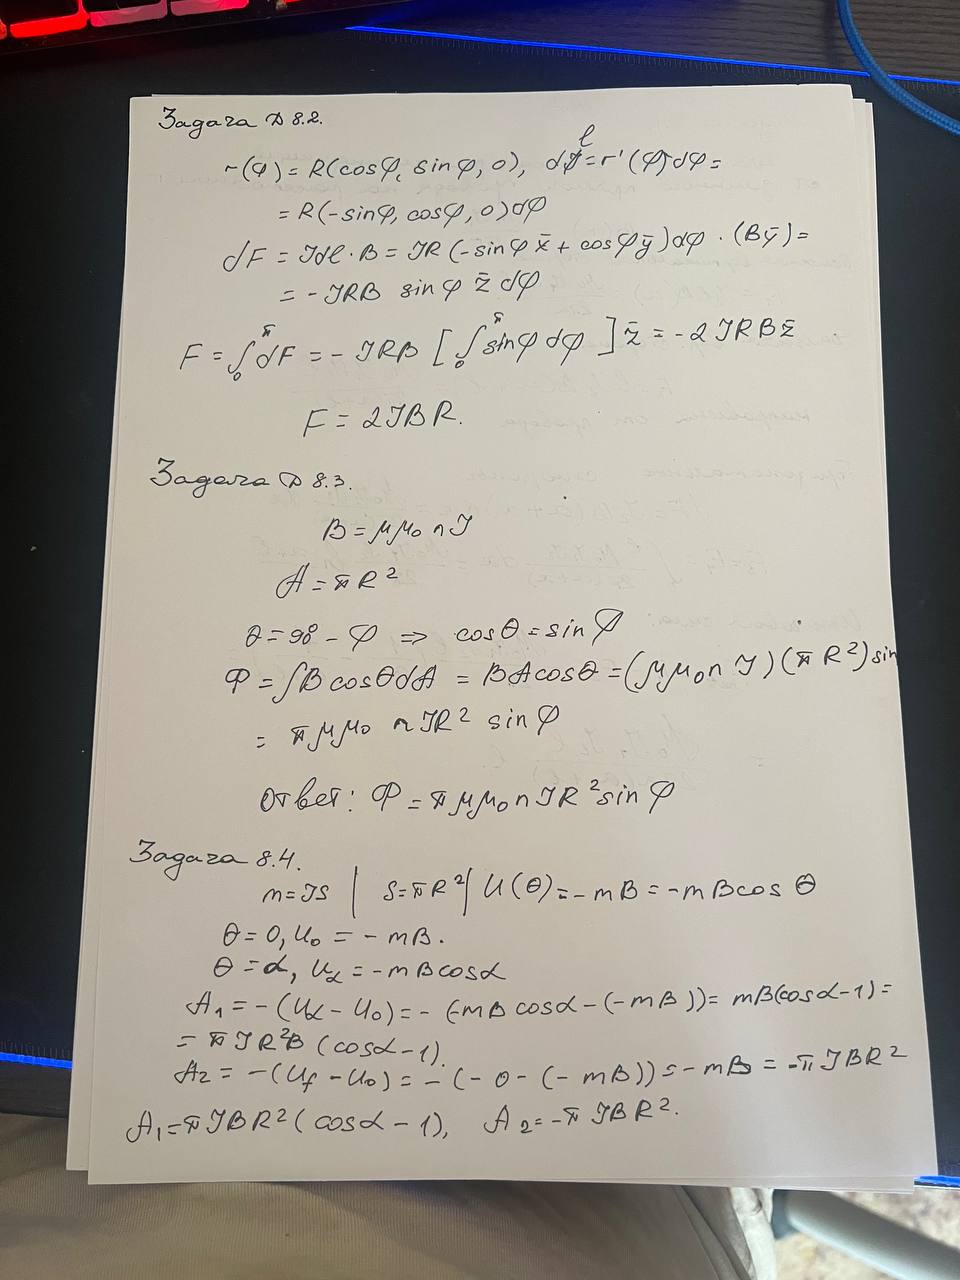 Задача D 8.2.
r(φ) = R(cosφ, sinφ, 0), dl = r'(φ)dφ =
= R(-sinφ, cosφ, 0)dφ
dF = Idl · B = IR (-sinφ x̄ + cosφ ȳ)dφ · (Bȳ) =
= - IRB sinφ z̄ dφ
F = ∫₀^π dF = - IRB [∫₀^π sinφ dφ] z̄ = -2IRBz̄
F = 2IBR.
Задача D 8.3.
B = μμ₀ nI
A = πR²
θ = 90 - φ ⇒ cosθ = sinφ
Ф = ∫B cosθdA = BAcosθ = (μμ₀ n I)(πR²)sin
= πμμ₀ nIR² sinφ
Ответ: Ф = πμμ₀nIR² sinφ
Задача 8.4.
m = IS | S = πR² | U(θ) = -mB = -mBcosθ
θ = 0, U₀ = -mB.
θ = α, Uα = -mBcosα
A₁ = -(Uα - U₀) = -(-mB cosα - (-mB)) = mB(cosα-1) =
= πIR²B (cosα-1).
A₂ = -(Uf - U₀) = -(-0-(-mB)) = -mB = -πIBR²
A₁ = πIBR²(cosα-1), A₂ = -πIBR².